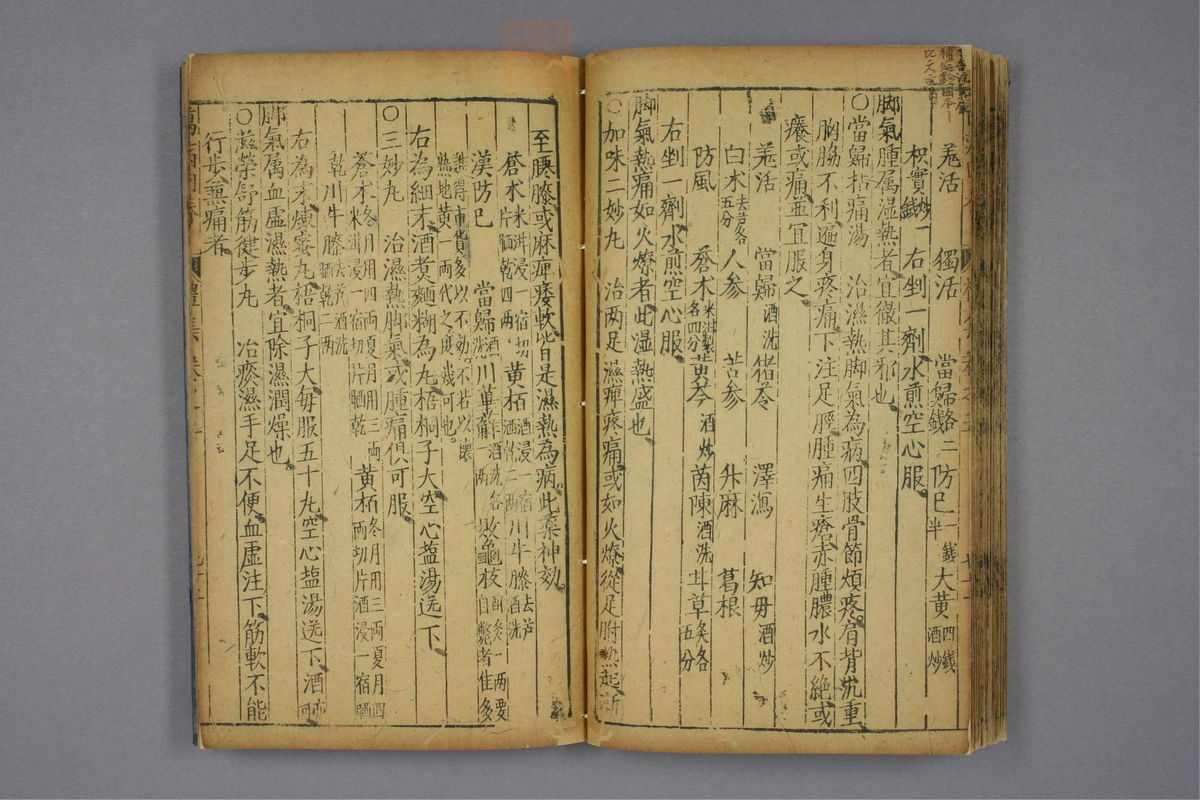 羗活　獨活　當歸各二錢　防巳一錢半　大黃四錢酒炒
枳實炒一錢　右剉一劑水煎空心服
脚氣腫属湿熱者宜徹其邪也
○當歸拈痛湯　治濕熱脚氣為病四肢骨節煩疼肩背沉重
胸脇不利遍身疼痛下注足脛腫痛生瘡赤腫膿水不絶或
癢或痛並宜服之
羗活　當歸酒洗　猪苓　澤瀉　知毋酒炒
白术去芦各五分　人参　苦参　升麻　葛根
防風　蒼木米泔製各四分　黃芩酒炒　茵陳酒洗　甘草炙各五分
右剉一劑水煎空心服
脚氣熱痛如火燎者此湿熱盛也
○加味二妙丸　治两足濕痺疼痛或如火燎從足跗熱起漸
至腰膝或麻痺痿軟皆是濕熱為病此藥神効
蒼木米泔浸一宿切片晒乾四两　黃栢酒浸一宿晒乾二两　川牛膝去芦酒洗
漢防巳　當歸酒洗　川萆薢酒洗各一两　敗龜板酥炙一两要自斃者佳多
難得市貨多以不効不若以懷熟地黃一两代之庶幾可也
右為細末酒煑麵糊為丸梧桐子大空心盐湯送下
○三妙丸　治濕熱脚氣或腫痛俱可服
蒼木冬月用四两夏月用三两米泔浸一宿切片晒乾　黃栢冬月用三两夏月四两切片酒浸一宿晒
乾　川牛膝去芦酒洗晒乾二两
右為末煉蜜丸梧桐子大毎服五十丸空心盐湯送下酒亦可
脚氣属血虛濕熱者宜除濕潤燥也
○滋榮舒筋健步丸　治瘀濕手足不便血虛注下筋軟不能
行歩兼痛者